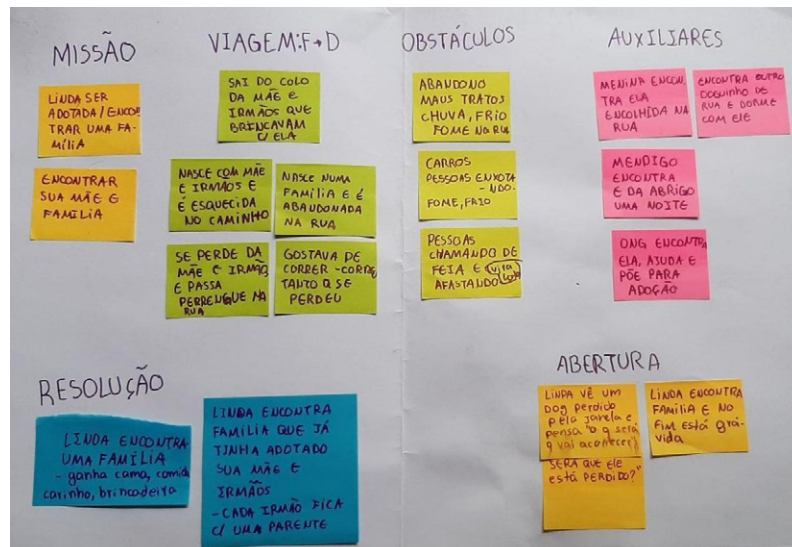 MISSÃO
LINDA SER
ADOTADA/ENCON
TRAR UMA FA-
MÍLIA
ENCONTRAR
SUA MÃE E
FAMÍLIA
VIAGEM:F→D
SAI DO COLO
DA MÃE E
IRMÃOS QUE
BRINCAVAM
C/ ELA
NASCE COM MÃE
E IRMÃOS E
É ESQUECIDA
NO CAMINHO
NASCE NUMA
FAMÍLIA E É
ABANDONADA
NA RUA
SE PERDE DA
MÃE E IRMÃO
E PASSA
PERRENGUE NA
RUA
GOSTAVA DE
CORRER - CORRE
TANTO Q SE
PERDEU
OBSTÁCULOS
ABANDONO
MAUS TRATOS
CHUVA, FRIO
FOME NA RUA
CARROS
PESSOAS ENXOTA
- NDO.
FOME, FRIO
PESSOAS
CHAMANDO DE
FEIA E vira
AFASTANDO lata
AUXILIARES
MENINA ENCON
TRA ELA
ENCOLHIDA NA
RUA
ENCONTRA OUTRO
DOGUINHO DE
RUA E DORME
COM ELE
MENDIGO
ENCONTRA
E DA ABRIGO
UMA NOITE
ONG ENCONTRA
ELA, AJUDA E
PÕE PARA
ADOÇÃO
RESOLUÇÃO
LINDA ENCONTRA
UMA FAMÍLIA
- ganha cama, comida
carinho, brincadeira
LINDA ENCONTRA
FAMÍLIA QUE JÁ
TINHA ADOTADO
SUA MÃE E
IRMÃOS
- CADA IRMÃO FICA
C/ UMA PARENTE
ABERTURA
LINDA VÊ UM
DOG PERDIDO
PELA JANELA E
PENSA "o q será
q vai acontecer?
SERÁ QUE ELE
está PERDIDO?"
LINDA ENCONTRA
FAMÍLIA E NO
FIM Está grá-
vida